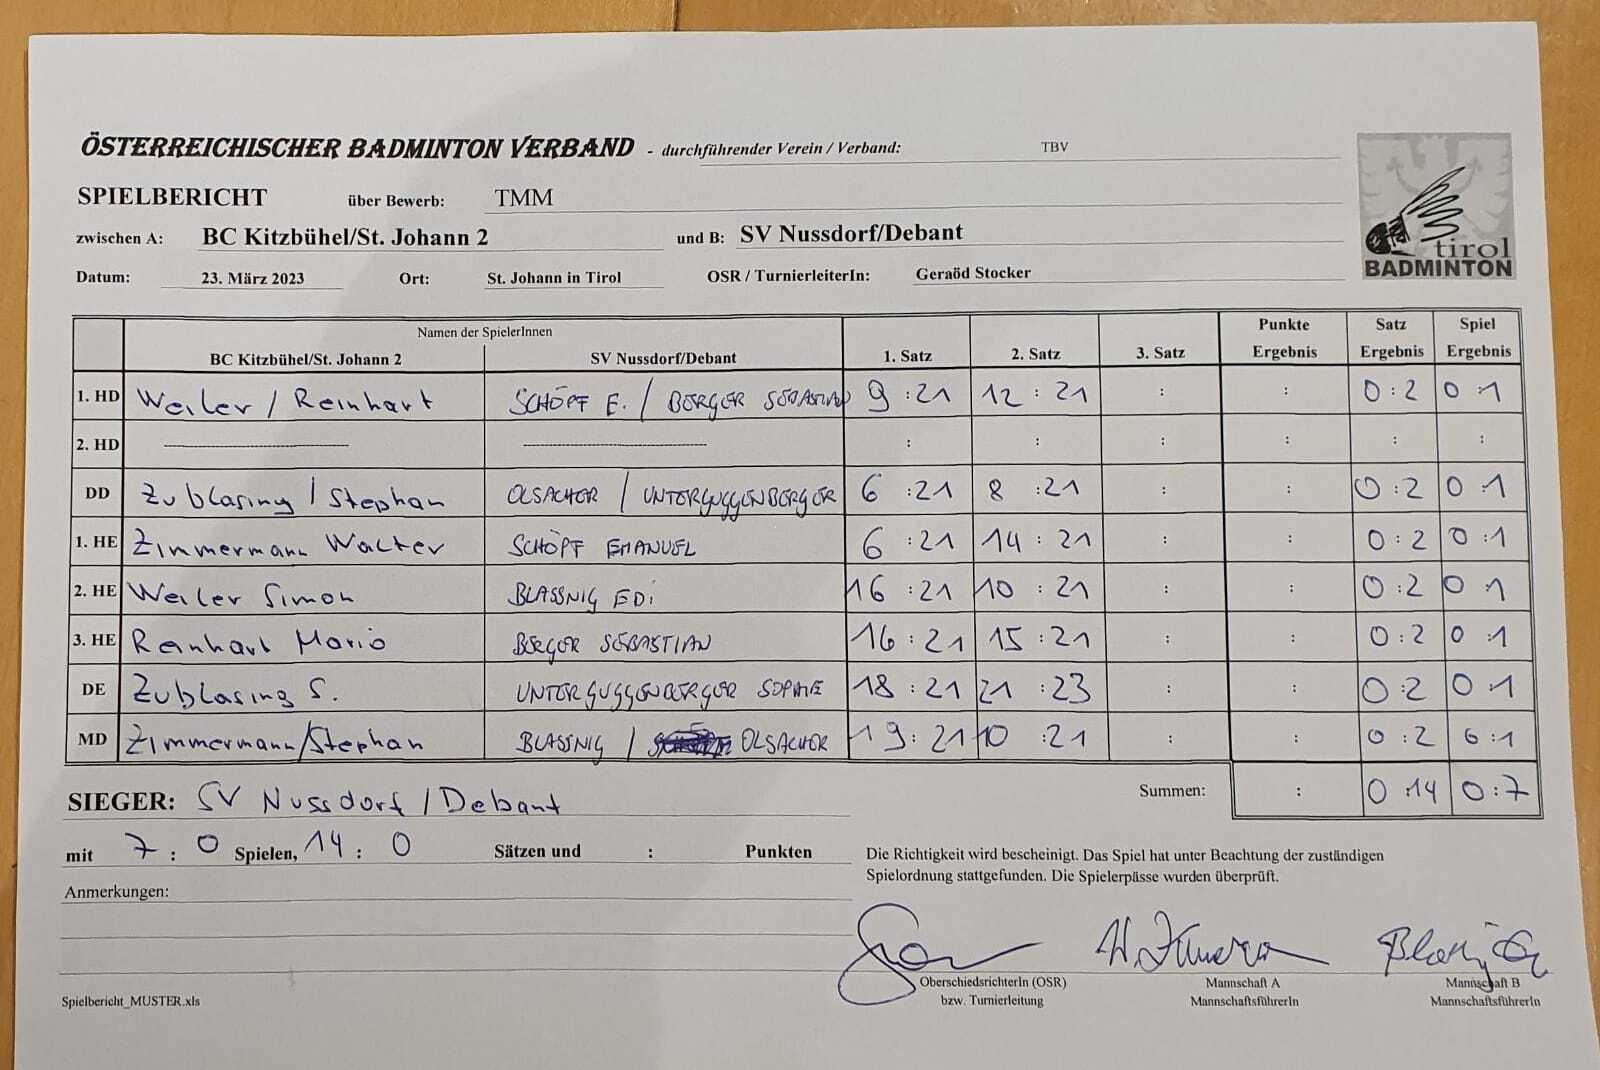 ÖSTERREICHISCHER BADMINTON VERBAND - durchführender Verein / Verband: TBV
SPIELBERICHT über Bewerb: TMM
zwischen A: BC Kitzbühel/St. Johann 2 und B: SV Nussdorf/Debant
Datum: 23. März 2023 Ort: St. Johann in Tirol OSR / TurnierleiterIn: Geraöd Stocker
tirol
BADMINTON
Namen der SpielerInnen Punkte Satz Spiel
BC Kitzbühel/St. Johann 2 SV Nussdorf/Debant 1. Satz 2. Satz 3. Satz Ergebnis Ergebnis Ergebnis
1. HD Weiler / Reinhart SCHÖPF E. / BERGER SEBASTIAN 9 : 21 12 : 21 : : 0 : 2 0 : 1
2. HD : : : : : :
DD Zublasing / Stephan OLSACHER / UNTERGUGGENBERGER 6 : 21 8 : 21 : : 0 : 2 0 : 1
1. HE Zimmermann Walter SCHÖPF EMANUEL 6 : 21 14 : 21 : : 0 : 2 0 : 1
2. HE Weiler Simon BLASSNIG EDI 16 : 21 10 : 21 : : 0 : 2 0 : 1
3. HE Reinhart Mario BERGER SEBASTIAN 16 : 21 15 : 21 : : 0 : 2 0 : 1
DE Zublasing S. UNTERGUGGENBERGER SOPHIE 18 : 21 21 : 23 : : 0 : 2 0 : 1
MD Zimmermann/Stephan BLASSNIG / OLSACHER 19 : 21 10 : 21 : : 0 : 2 0 : 1
Summen: : 0 : 14 0 : 7
SIEGER: SV Nussdorf / Debant
mit 7 : 0 Spielen, 14 : 0 Sätzen und : Punkten
Die Richtigkeit wird bescheinigt. Das Spiel hat unter Beachtung der zuständigen
Spielordnung stattgefunden. Die Spielerpässe wurden überprüft.
Anmerkungen:
OberschiedsrichterIn (OSR) Mannschaft A Mannschaft B
bzw. Turnierleitung MannschaftsführerIn MannschaftsführerIn
Spielbericht_MUSTER.xls